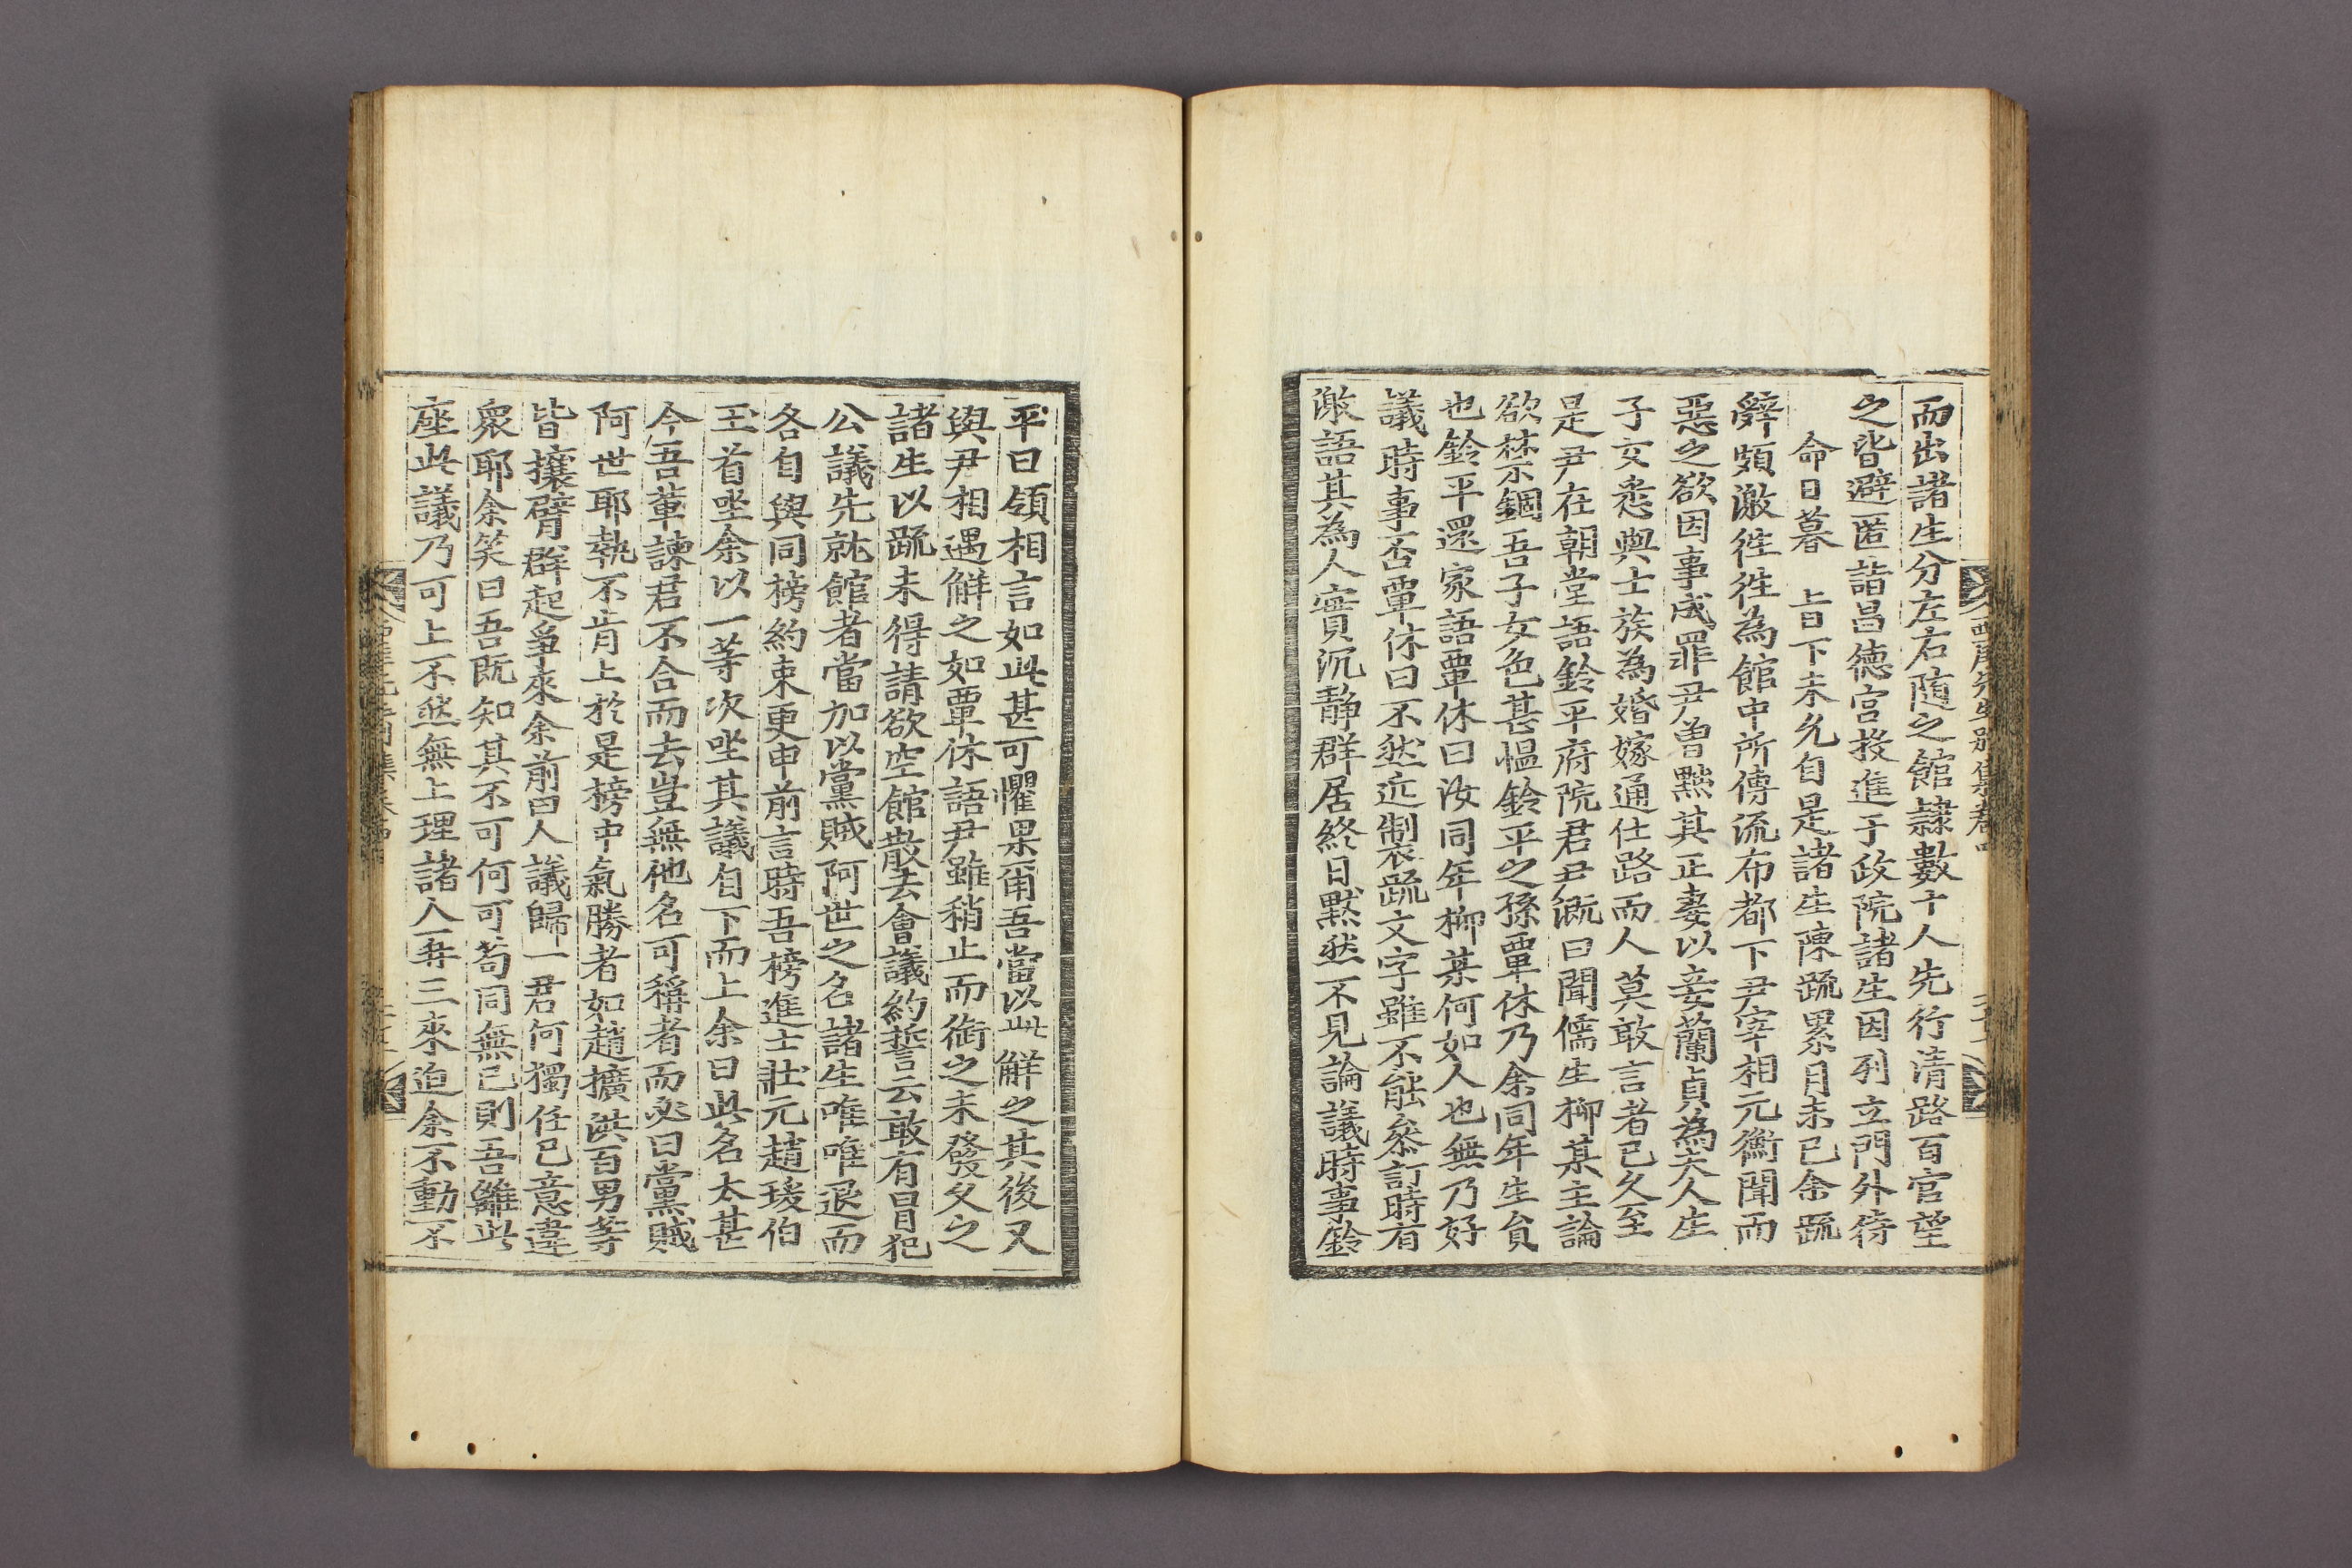 而出諸生分左右随之館隷數十人先行清路百官望
之皆避匿詣昌德宮投進于政院諸生因列立門外待
命日暮 上旨下未允自是諸生陳疏累月未已余疏
辭頗激徃徃為館中所傳流布都下尹宰相元衡聞而
惡之欲因事成罪尹曽黙其正妻以妾蘭貞為夫人生
子女悉與士族為婚嫁通仕路而人莫敢言者已久至
是尹在朝堂語鈴平府院君尹漑曰聞儒生柳某主論
欲禁錮吾子女色甚慍鈴平之孫覃休乃余同年生負
也鈴平還家語覃休曰汝同年柳某何如人也無乃好
議時事否覃休曰不然近製疏文字雖不能叅訂時有
激語其為人實沉静群居終日黙然不見論議時事鈴
平曰領相言如此甚可懼果甭吾當以此觧之其後又
與尹相遇觧之如覃休語尹雖稍止而銜之未發父之
諸生以疏未得請欲空館散去會議約誓云敢有冒犯
公議先就館者當加以黨賊阿世之名諸生唯唯退而
各自與同榜約束更申前言時吾榜進士壯元趙瑗伯
玉首坐余以一等次坐其議自下而上余曰此名太甚
今吾輩諫君不合而去豈無他名可稱者而必曰黨賊
阿世耶執不肯上於是榜中氣勝者如趙擴洪百男等
皆攘臂群起爭來余前曰人議歸一君何獨任己意違
衆耶余笑曰吾既知其不可何可苟同無已則吾離此
座此議乃可上不然無上理諸人再三來迫余不動不